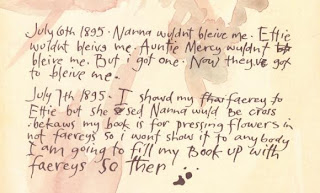 July 6th 1895. Nanna wuldnt bleive me. Effie
wuldnt bleive me. Auntie Mercy wuldnt
bleive me. But i got one. Now theyve got
to bleive me.
July 7th 1895. I showd my faerey to
Effie but she sed Nanna wuld be cross
bekaws my book is for pressing flowers in
not faereys so i wont show it to anybody
I am going to fill my Book up with
faereys so ther